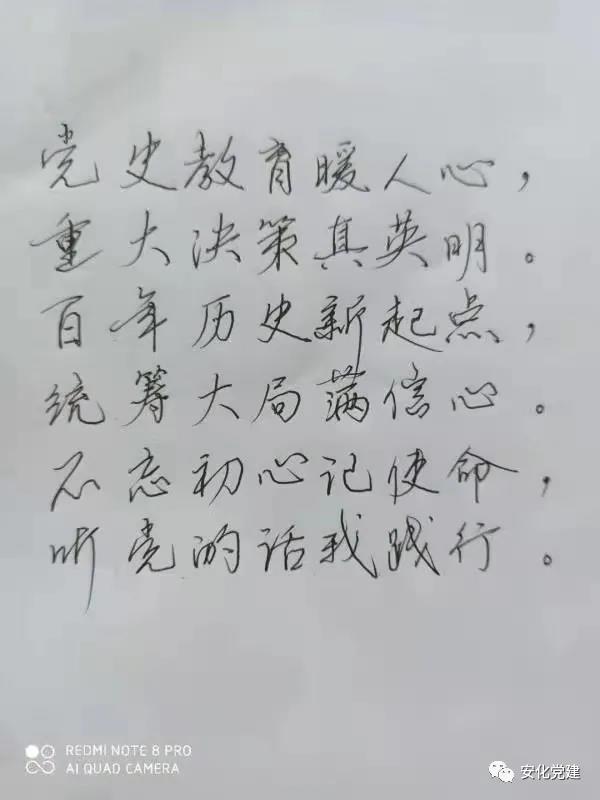 党史教育暖人心，
重大决策真英明。
百年历史新起点，
统筹大局满信心。
不忘初心记使命，
听党的话我践行。
REDMI NOTE 8 PRO
AI QUAD CAMERA
安化党建